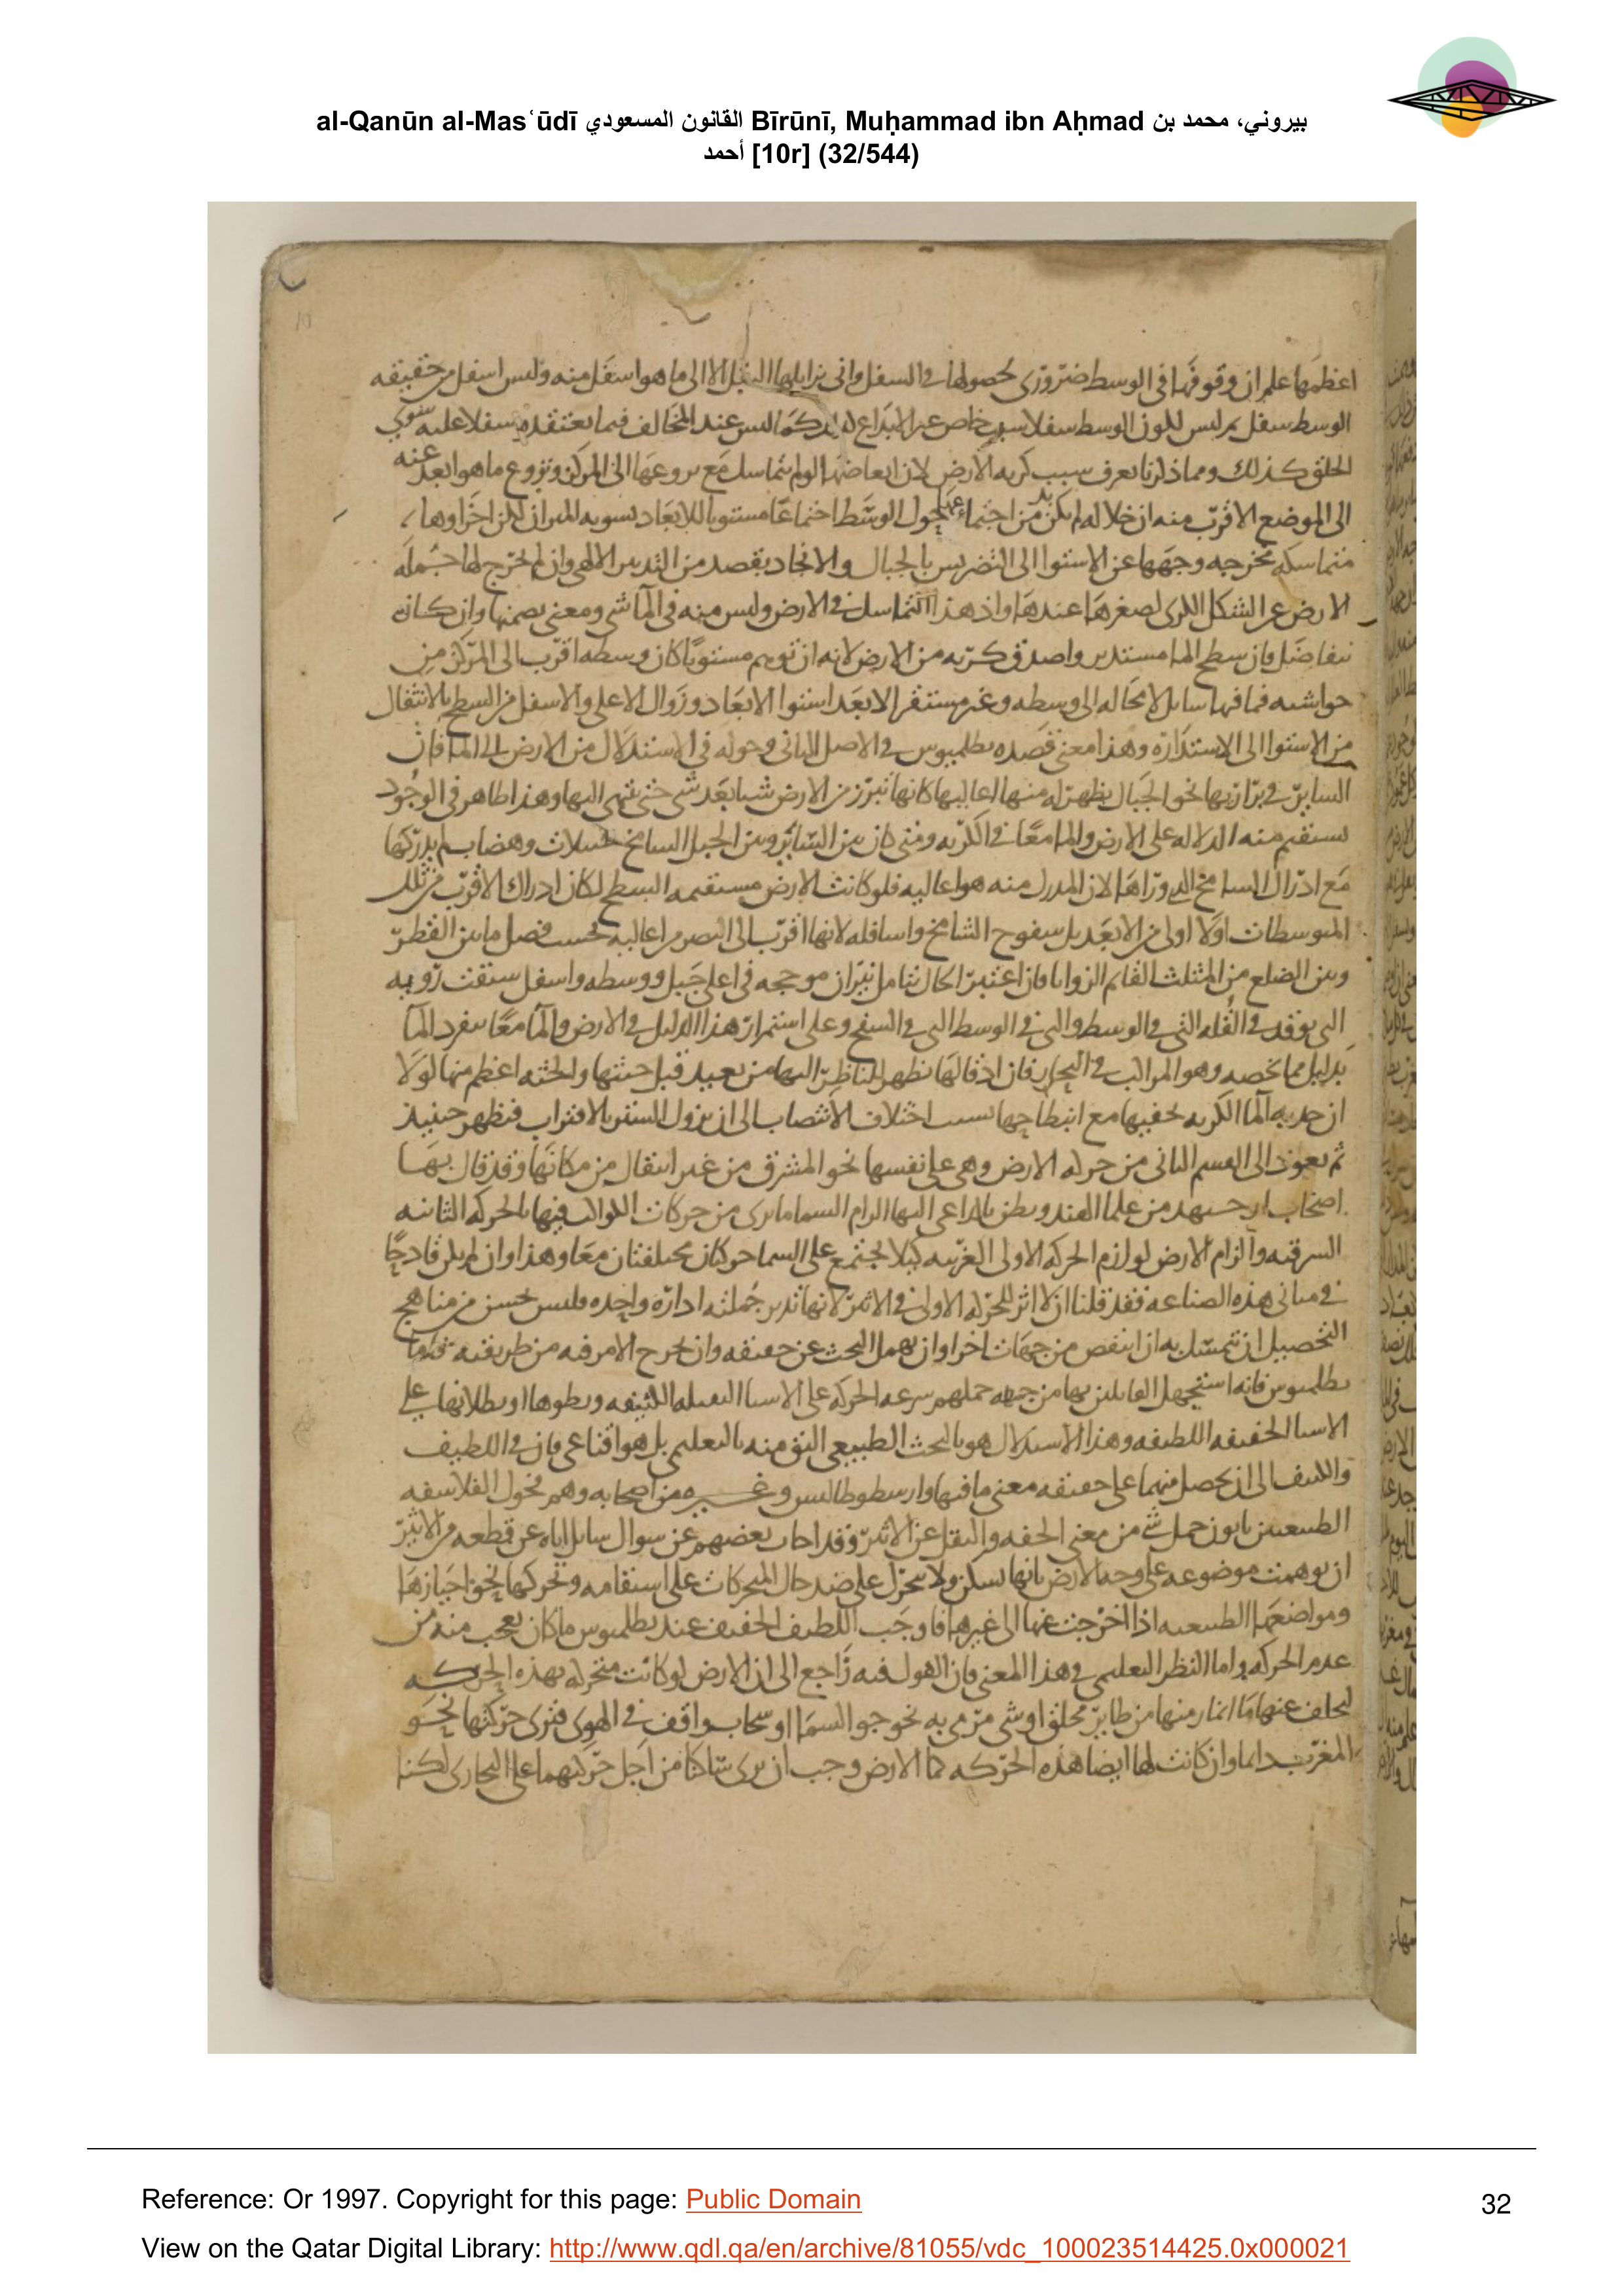 al-Qanūn al-Mas‘ūdī القانون المسعودي Bīrūnī, Muḥammad ibn Aḥmad بيروني، محمد بن
أحمد [10r] (32/544)
10
اعظمها علم ان وقوفها فى الوسط ضرورى لحصولها فى السفل وانى يزايلها الثقل الا الى ما هو اسفل منه وليس اسفل من حقيقه
الوسط سفل ثم ليس لكون الوسط سفلا سبب خاص غير الابداع له كما ليس عند المخالف فيما يعتقده سفلا عليه سوى
الخلق كذلك ومما ذكرنا يعرف سبب كريه الارض لان ابعاضها لو لم تتماسك مع نزوعها الى المركز ونزوع ما هو ابعد عنه
الى الموضع الاقرب منه ان خلا له لم يكن بد من اجتماعها حول الوسط اجتماعا مستويا للابعاد تسويه الميزان لكن اجزاوها
متماسكه مخرجه وجهها عن الاستوا الى التضريس بالجبال والانجاد بقصد من التدبير الالهى وان لم تخرج لها جمله
الارض عن الشكل الكرى لصغرها عندها واذ هذا التماسك فى الارض وليس منه فى الما شى ومعنى يصمتها وان كانه
يتفاضل فان سطح الما مستدير واصدق كريه من الارض لانه ان توهم مستويا كان وسطه اقرب الى المركز من
حواشيه فما فيها سايل لا محاله الى وسطه وغير مستقر الا بعد استوا الابعاد وزوال الاعلى والاسفل من السطح بالانتقال
من الاستوا الى الاستداره وهذا معنى قصده بطلميوس فى الاصل الثانى وحوله فى الاستدلال من الارض الى الما فان
الساير فى برازيها نحو الجبال يظهر له منها اعاليها كانها تبرز من الارض شيا بعد شى حتى ينتهى اليها وهذا ظاهر فى الوجود
يستقيم منه الدلاله على الارض والما معا فى الكريه ومتى كان بين الساير وبين الجبل الشامخ وهضاب لم يدركها
مع ادراك الشامخ الذى وراها لان المدرك منه هو اعاليه فلو كانت الارض مستقيمه السطح لكان ادراك الاقرب من تلك
المتوسطات اولا اولى من الابعد بل سفوح الشامخ واسافله لانها اقرب الى البصر من اعاليه بحسب فصل ما بين القطر
وبين الضلع من المثلث القايم الزوايا فان اعتبر الحال بتامل نيران موججه فى اعلى جبل ووسطه واسفل سبقت رويه
التى توقد فى القله التى فى الوسط والتى فى الوسط التى فى السفح وعلى استمرار هذا الدليل فى الارض والما معا ينفرد الما
بدليل مما يخصه وهو المراكب فى البحار فان ادقالها تظهر للناظر اليها من بعيد قبل جثتها والجثه اعظم منها لولا
ان حدبه الما الكريه تخفيها مع انبطاحها بسبب اختلاف الانتصاب الى ان يزول الستر بالاقتراب فتظهر حينيذ
ثم نعود الى القسم الثانى من حركه الارض وهى على نفسها نحو المشرق من غير انتقال من مكانها وقد قال بها
اصحاب ارجبهد من علما الهند ويظن بالداعى اليها الزام السما ما يرى من حركات الكواكب فيها بالحركه الثانيه
الشرقيه والزام الارض لوازم الحركه الاولى الغربيه كيلا يجتمع على السما حركتان مختلفتان معا وهذا وان لم يكن قادحا
فى مبانى هذه الصناعه فقد قلنا ان لا اثر للحركه الاولى فى الاثير لانها تدير جملته اداره واحده فليس يحسن من مناهج
التحصيل ان تتمسك به ان انتقض من جهات اخر او ان يهمل البحث عن حقيقته وان يخرج الامر فيه من طريقته فاما
بطلميوس فانه استجهل القايلين بها من جهه حملهم سرعه الحركه على الاشيا الثقيله الكثيفه وبطوها او بطلانها على
الاشيا الخفيفه اللطيفه وهذا الاستدلال هو بالبحث الطبيعى اليق منه بالتعليمى بل هو اقناعى فان فى اللطيف
والكثيف الى ان يحصل منهما على حقيقه معنى ما فيها وارسطوطاليس وغيره من اصحابه وهم فحول الفلاسفه
الطبيعيين يابون حمل شى من معنى الخفه والثقل عن الاثير وقد اجاب بعضهم عن سوال سايل اياه عن قطعه من الاثير
ان توهمت موضوعه على وجه الارض بانها تسكن ولا تتحرك على ضد حال المتحركات على استقامه وتحركها نحو احيازها
ومواضعها الطبيعيه اذا اخرجت عنها الى غيرها فاوجب اللطيف الخفيف عند بطلميوس ما كان تعجب منه من
عدم الحركه واما النظر التعليمى فى هذا المعنى فان القول فيه راجع الى ان الارض لو كانت متحركه بهذه الحركه
لتخلف عنها ما انماز منها من طاير محلق او شى مرمى به نحو جو السما او سحاب واقف فى الهوى فترى حركتها نحو
المغرب دايما وان كانت لها ايضا هذه الحركه كما الارض وجب ان يرى ساكنا من اجل حركتهما على التحارى لكنا
Reference: Or 1997. Copyright for this page: Public Domain
32
View on the Qatar Digital Library: http://www.qdl.qa/en/archive/81055/vdc_100023514425.0x000021